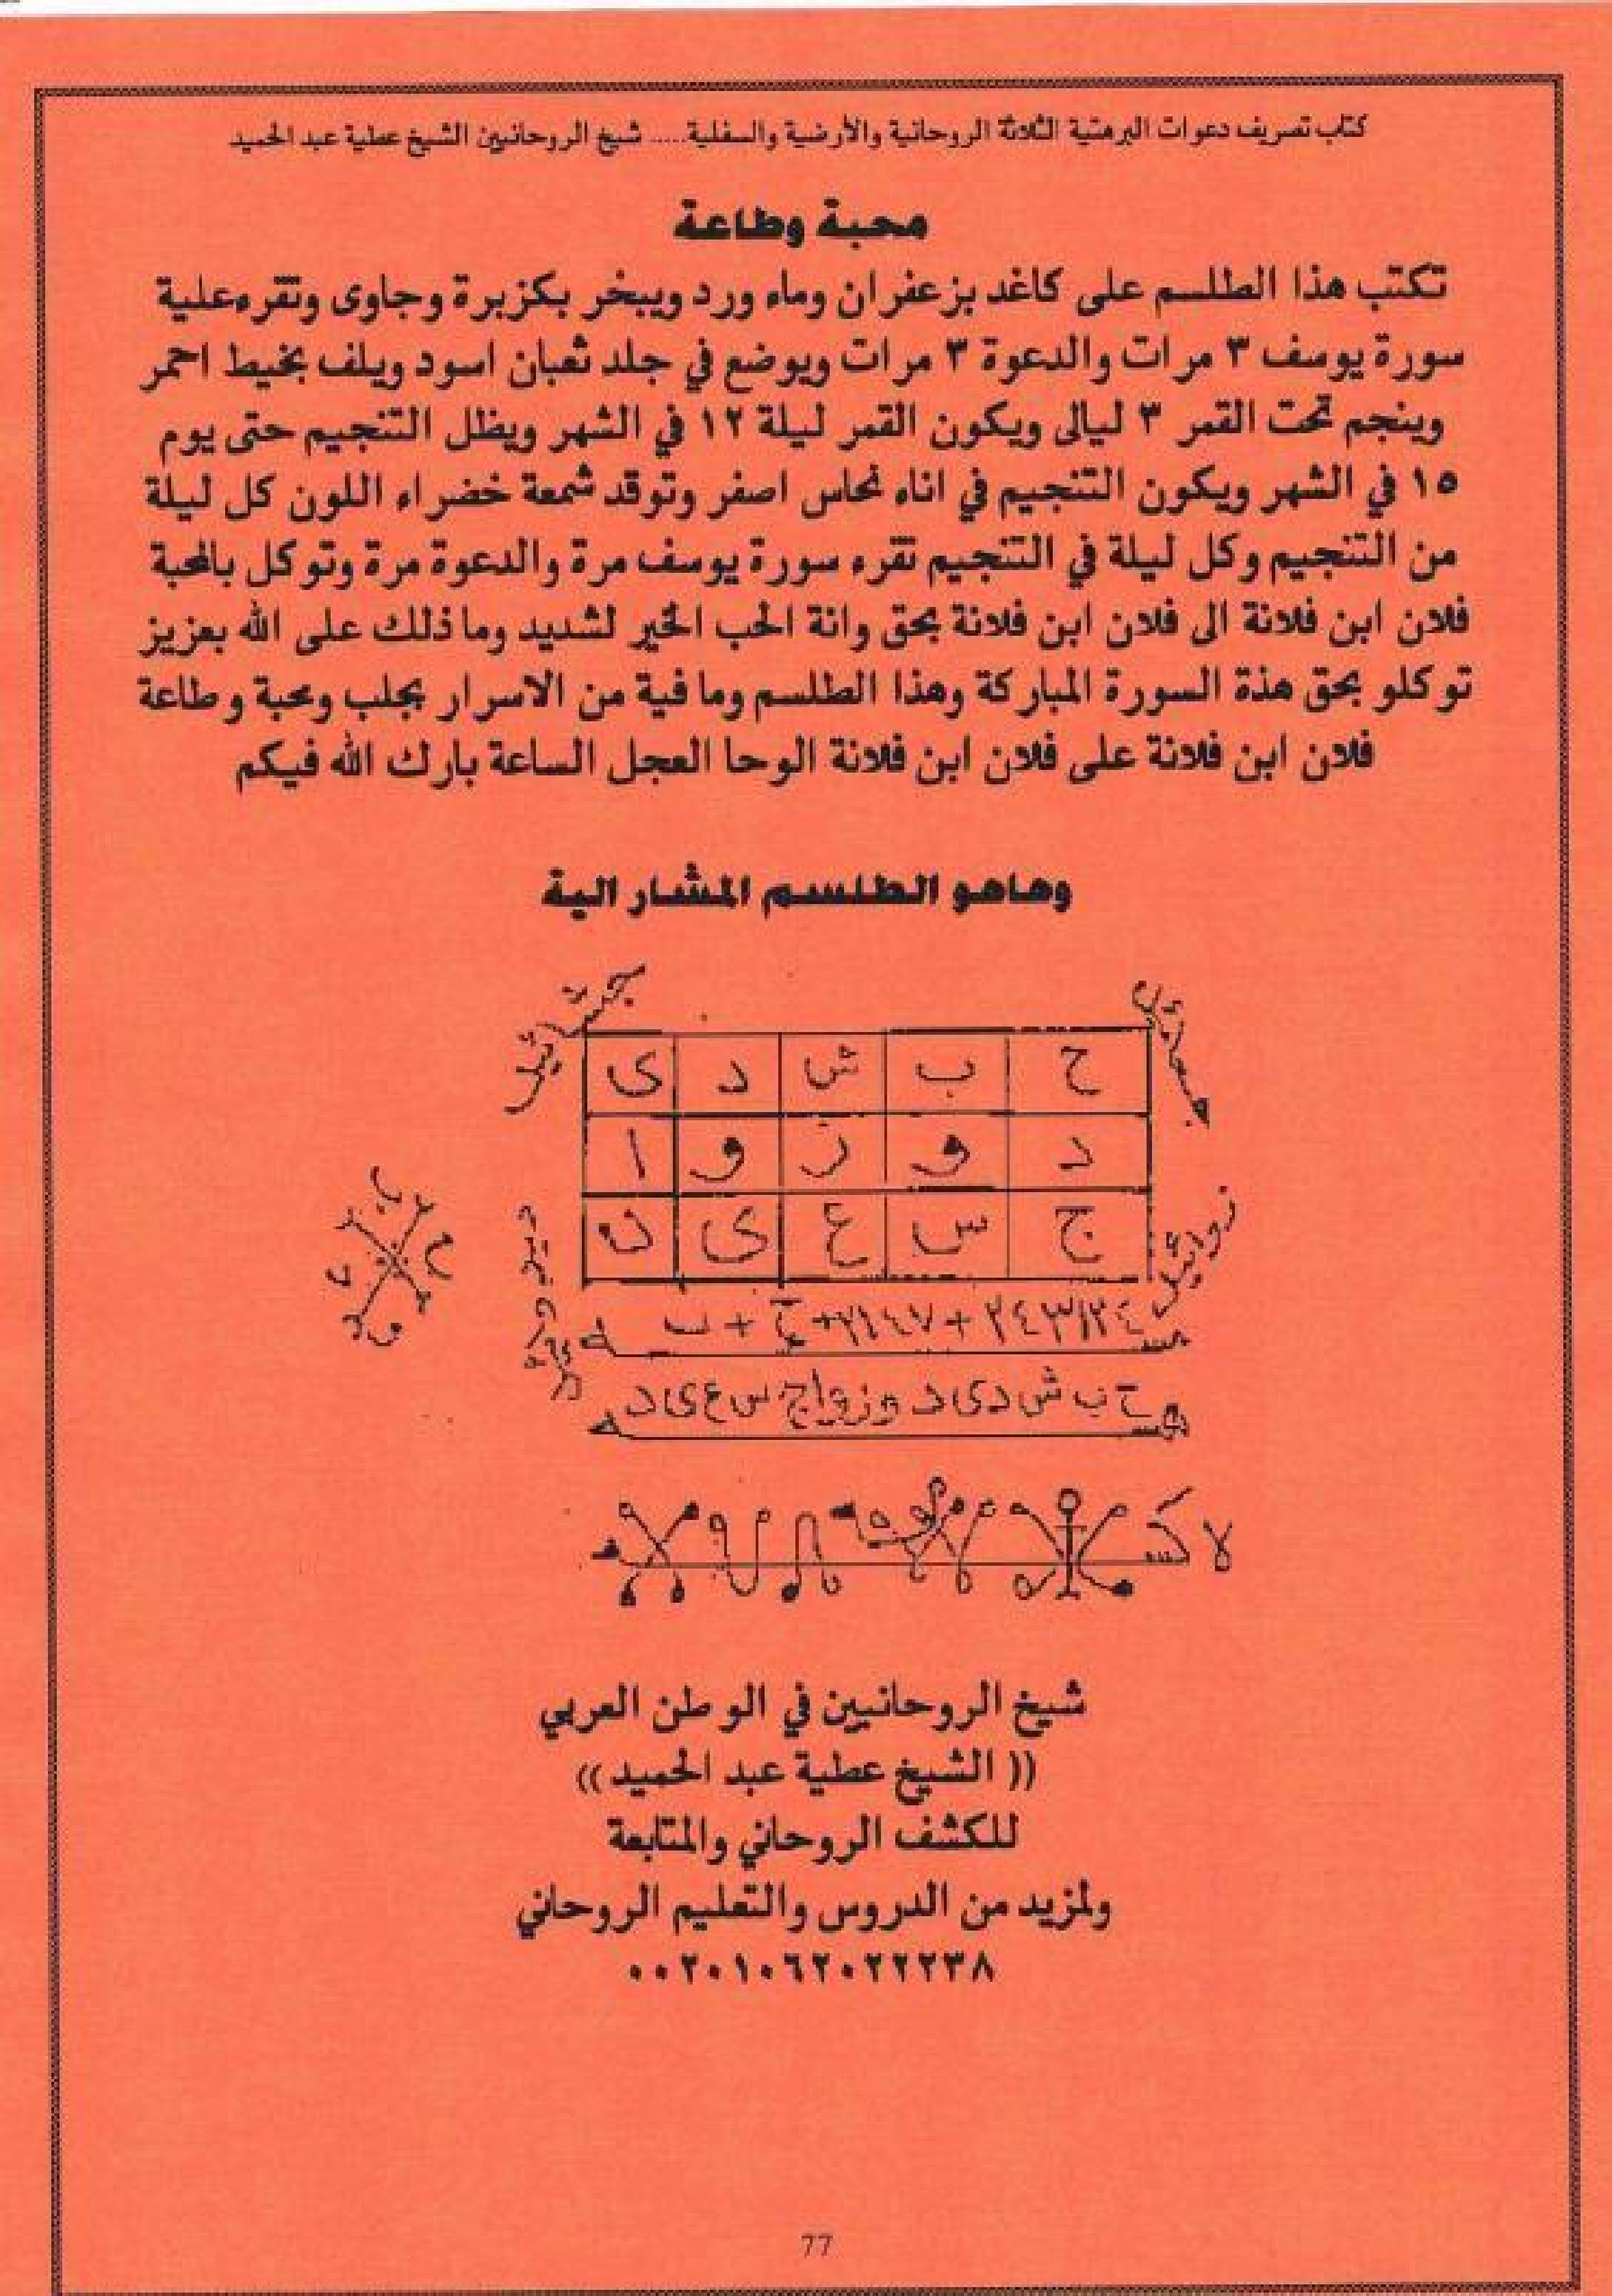 كتاب تصريف دعوات البرهتية الثلاثة الروحانية والأرضية والسفلية ..... شيخ الروحانيين الشيخ عطية عبد الحميد
محبة وطاعة
تكتب هذا الطلسم على كاغد بزعفران وماء ورد ويبخر بكزبرة وجاوى وتقرءعلية
سورة يوسف ٣ مرات والدعوة ٣ مرات ويوضع في جلد ثعبان اسود ويلف بخيط احمر
وينجم تحت القمر ٣ ليالى ويكون القمر ليلة ١٢ في الشهر ويظل التنجيم حتى يوم
١٥ في الشهر ويكون التنجيم في اناء نحاس اصفر وتوقد شمعة خضراء اللون كل ليلة
من التنجيم وكل ليلة في التنجيم تقرء سورة يوسف مرة والدعوة مرة وتوكل بالمحبة
فلان ابن فلانة الى فلان ابن فلانة بحق وانة الحب الخير لشديد وما ذلك على الله بعزيز
توكلو بحق هذة السورة المباركة وهذا الطلسم وما فية من الاسرار بجلب ومحبة وطاعة
فلان ابن فلانة على فلان ابن فلانة الوحا العجل الساعة بارك الله فيكم
وهاهو الطلسم المشار الية
ح ب ش د ى
د و ز و ا
ج س ع ى د
ح ب ش د ى د و ز و ا ج س ع ى د
شيخ الروحانيين في الوطن العربي
(( الشيخ عطية عبد الحميد ))
للكشف الروحاني والمتابعة
ولمزيد من الدروس والتعليم الروحاني
٠٠٢٠١٠٦٢٠٢٢٢٣٨
77